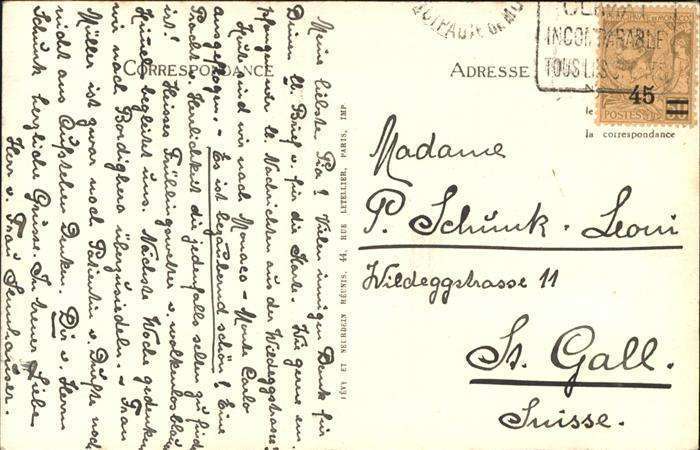 CORRESPONDANCE
Meine liebste Pia! Vielen innigen Dank für
Deinen lb. Brief u. für die Karte. Wie gerne em-
pfangen wir lb. Nachrichten aus der Wildeggstrasse!
Heute sind wir nach Monaco - Monte Carlo
ausgeflogen. - Es ist bezaubernd schön! Eine
Pracht u. Herrlichkeit die jedenfalls selten zu finden
ist! Heisses Frühlingswetter u. wolkenlos blauer
Himmel begleitet uns. Nächste Woche gedenken
wir nach Bordighera überzusiedeln. - Frau
Müller ist zwar noch Patientin u. Dürfte noch
nicht ans Aufstehen Denken. Dir u. Herrn
Schunk herzliche Grüsse. In treuer Liebe
Herr u. Frau
LÉVY ET NEURDEIN RÉUNIS, 44, RUE LETELLIER, PARIS, IMP.
ADRESSE
INCOMPARABLE
TOUS LES
45
POSTES
le
la correspondance
Madame
P. Schunk - Leoni
Wildeggstrasse 11
St. Gall.
Suisse.